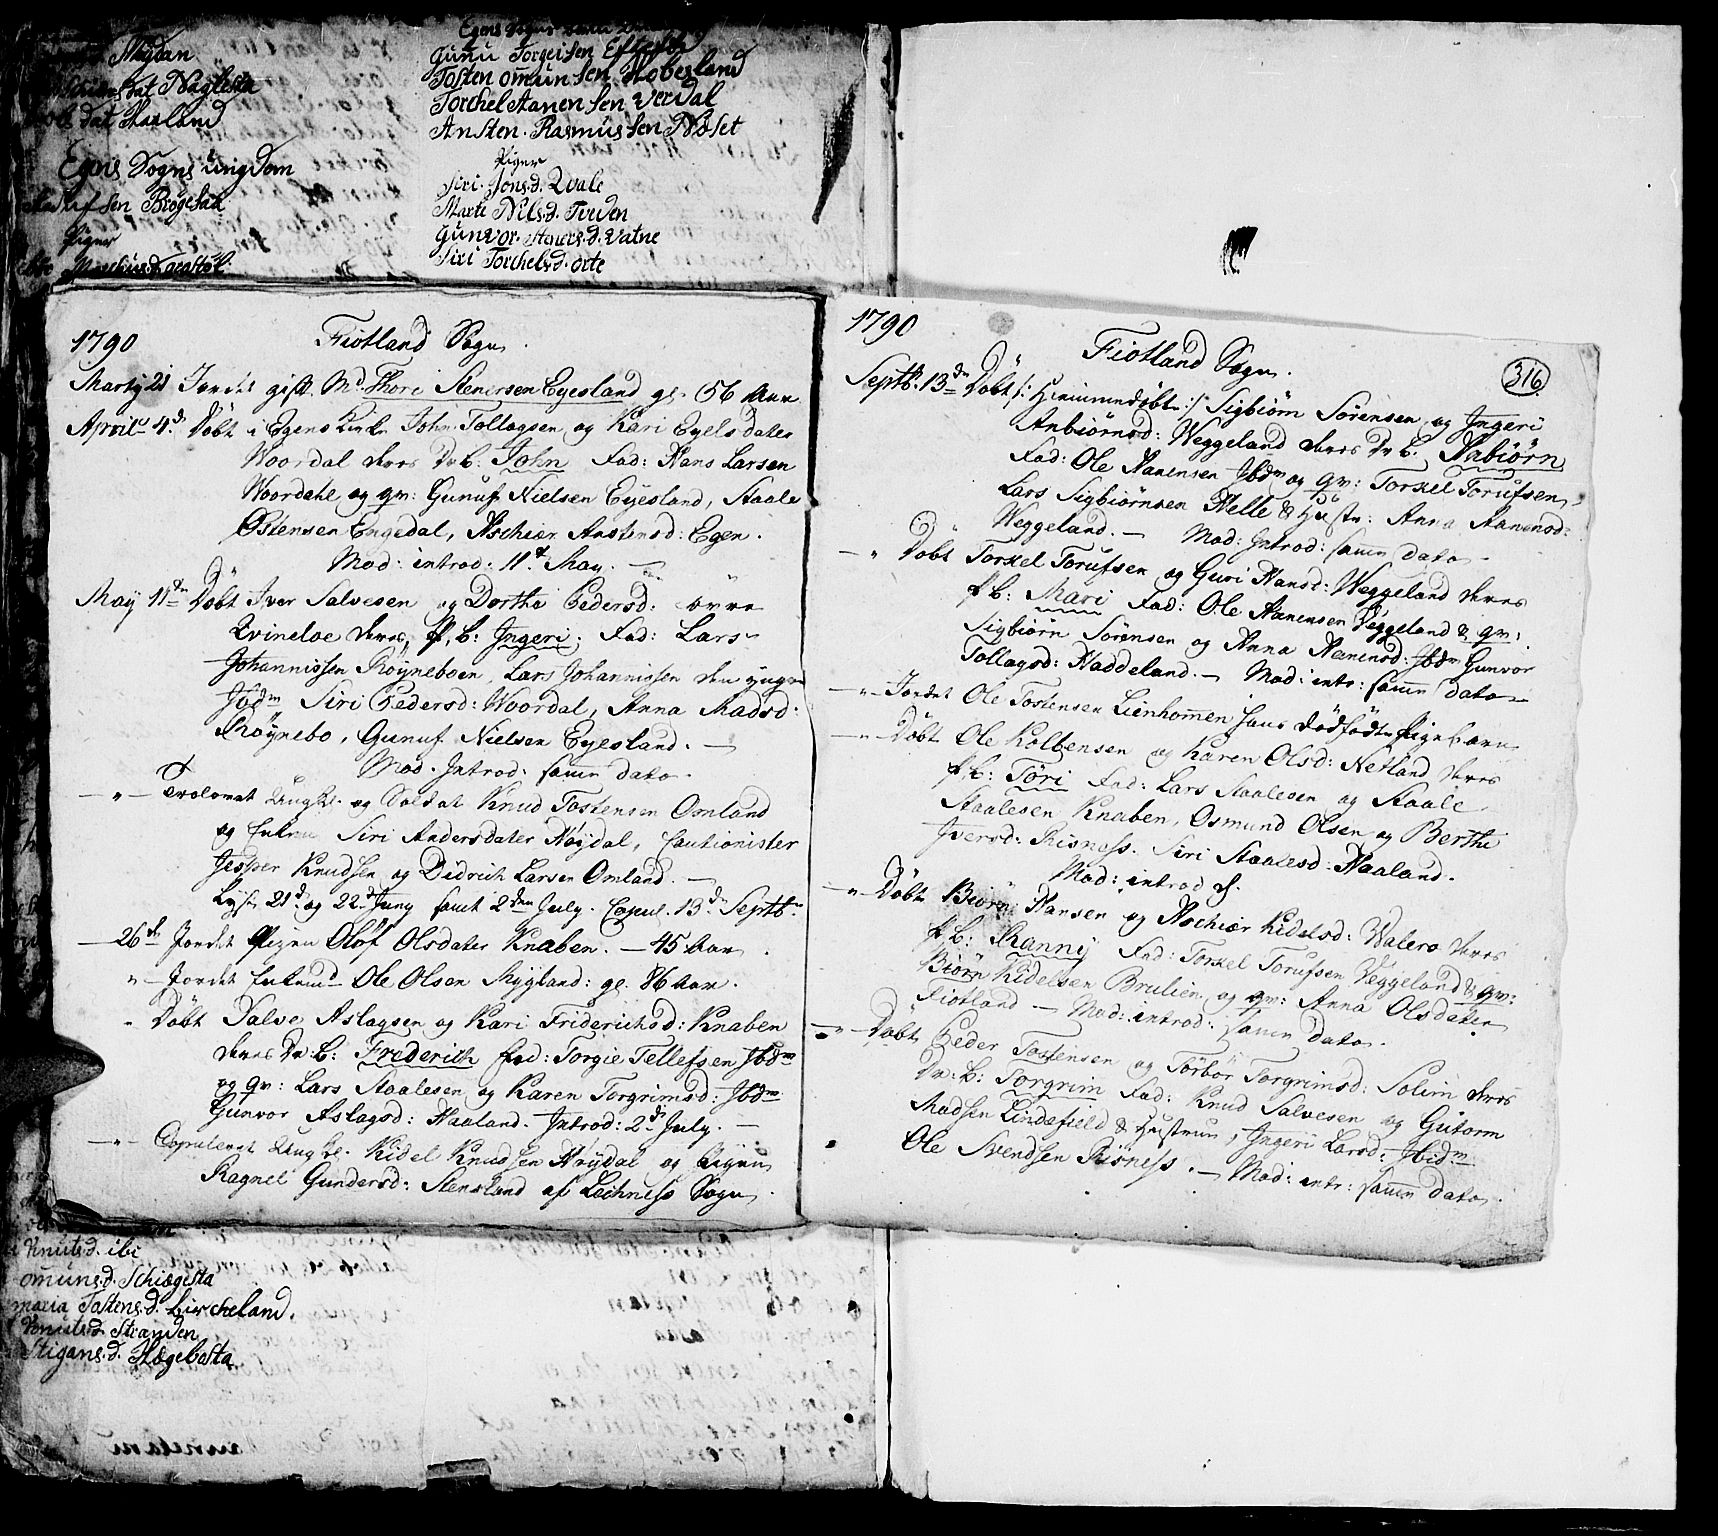 Mÿdan
dat Naglesta
dat Haaland
Egens Sogns ungdom
sen Brøgesaa
Piger
Egens Sogns
Gunu Torgeisen Eftestøl
Tosten omunsen Hobesland
Torchel Aanensen Verdal
Ansten Rasmussen Nøset
Piger
Siri Jons.d. Qvale
Marte Nils.d. Treden
Gunvor Steners.d. Vatne
Siri Torchelsd. orte
1790 Fiotland Sogn.
Martij 21 Jordet gift Md. Thori Stenersen Eyesland gl. 56 Aar
April 4.d Døbt i Egens Kirke John Tollagsen og Kari Eyelsdater
Woordal deres Dr.b: John Fad: Hans Larsen
Woordahl og qv: Gunuf Nielsen Eyesland, Staale
Østensen Engedal, Aschier Anstensd: Egen.
Mod: introd: 11.t May.
May 11de Døbt Iver Salvesen og Dorthe Pedersd: øvre
Qvineloe deres p.b: Ingeri. Fad: Lars
Johannissen Røyneboen, Lars Johannissen den yngre
Ibdm Siri Pedersd: Woordal, Anna Madsd:
Røynebo, Gunuf Nielsen Eyesland.
Mod. Introd: samme dato.
— " — Trolovet Ungkl. og Soldat Knud Tostensen Omland
og Enken Siri Andersdater Høydal, Cautionister
Jesper Knudsen og Didrich Larsen Omland.
Lyst 21.d og 22.d Juny samt 2den July. Copul. 13.de Septbr.
— 26de Jordet Pigen Oløf Olsdater Knaben. — 45 Aar.
" — Jordet Enkemd. Ole Olsen Mygland: gl. 86 Aar.
" Døbt Salve Aslagsen og Kari Friderichsd: Knaben
deres Dr:b: Frederich Fad: Torgie Tellefsen Ibdm
og qv: Lars Staalesen og Karen Torgrimsd: Ibdm
Gunvor Aslagsd: Haaland. Introd: 2de July.
— " — Copuleret Ungkl. Kidel Knudsen Høydal og Pigen
Ragnel Gundersd: Stensland af Lachness Sogn.
1790 Fiotland Sogn. 316
Septb. 13de Døbt /: Hiemmedøbt :/ Sigbiørn Sørensen og Ingeri
Anbiørnsd: Weggeland deres Dr b. Aabiørn
Fad: Ole Aanensen Ibdm og qv: Torkel Torufsen,
Lars Sigbiørnsen Helle & Hustr: Anna Aanensd:
Weggeland. — Mod: Introd: samme dato
— " Døbt Torkel Torufsen og Guri Hansd: Weggeland deres
p b: Mari Fad: Ole Aanensen Veggeland & qv:
Sigbiørn Sørensen og Anna Aanensd: Ibdm Gunvor
Tollagsd: Haddeland. — Mod: intr: samme dato
— " — Jordet Ole Tostensen Lienhommen hans dødfødte Pigebarn
— " — Døbt Ole Kolbensen og Karen Olsd: Netland deres
p.b: Tøri Fad: Lars Staalesen og Staale
Staalesen Knaben, Osmund Olsen og Berthe
Iversd: Risness. Siri Staalesd. Haaland.
Mod: introd d.
— " — Døbt Biørn Hansen og Aschier Kidelsd: Walero deres
p b: Ranny Fad: Torkel Torufsen Veggeland & qv:
Biørn Kidelsen Brulien og qv: Anna Olsdater
Fiotland — Mod: introd: samme dato.
— " — Døbt Peder Tostensen og Tørbor Torgrimsd: Solim deres
Dr: b: Torgrim Fad: Knud Salvesen og Gutorm
Madsen Lindefield & Hustrun, Ingeri Larsd: Ibidm
Ole Svendsen Risness. — Mod: intr: samme dato.
Knuts.d. ibi
omuns.d. Schiægesta
maria Tostens.d. Lircheland.
Knuts.d. Stranden
Stigans.d. Hægebosta